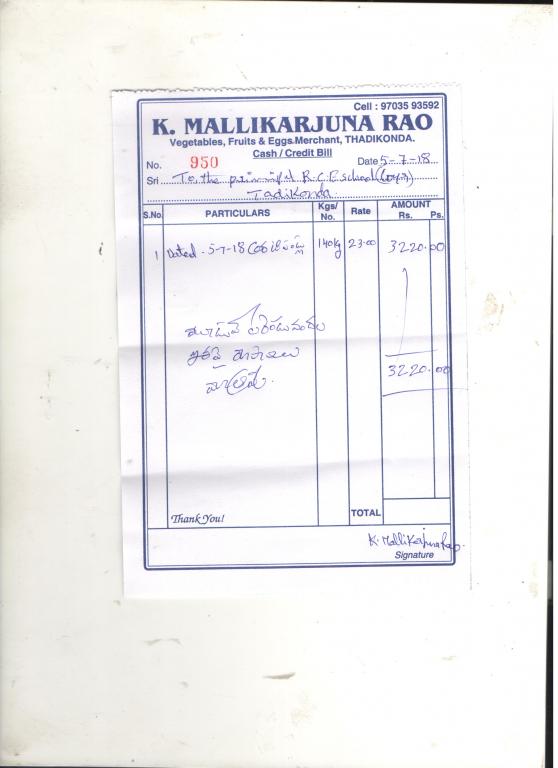 Cell : 97035 93592
K. MALLIKARJUNA RAO
Vegetables, Fruits & Eggs.Merchant, THADIKONDA.
Cash / Credit Bill
No. 950 Date 5-7-18
Sri To the principal School
Tadikonda
S.No. PARTICULARS Kgs/ No. Rate AMOUNT Rs. Ps.
1 Dated - 5-7-18 అరటి పండ్లు 140kg 23.00 3220.00
మూడువేల రెండువందల
ఇరవై రూపాయలు
మాత్రమే.
3220.00
Thank You! TOTAL
K. Mallikarjuna Rao.
Signature